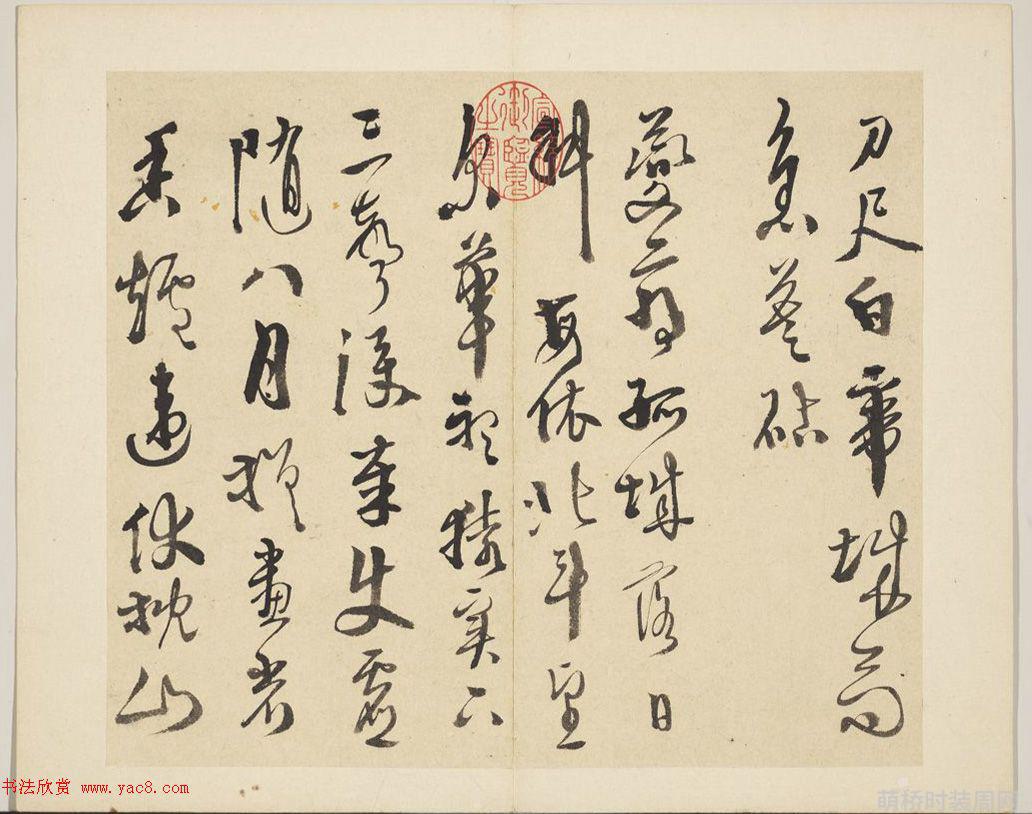 刀尺白帝城高
急暮砧
夔府孤城落日
斜每依北斗望
京華聽猿實下
三聲淚奉使虛
隨八月槎畫省
香爐違伏枕山
宣統御覽之寶
书法欣赏 www.yac8.com
萌桥时装周网